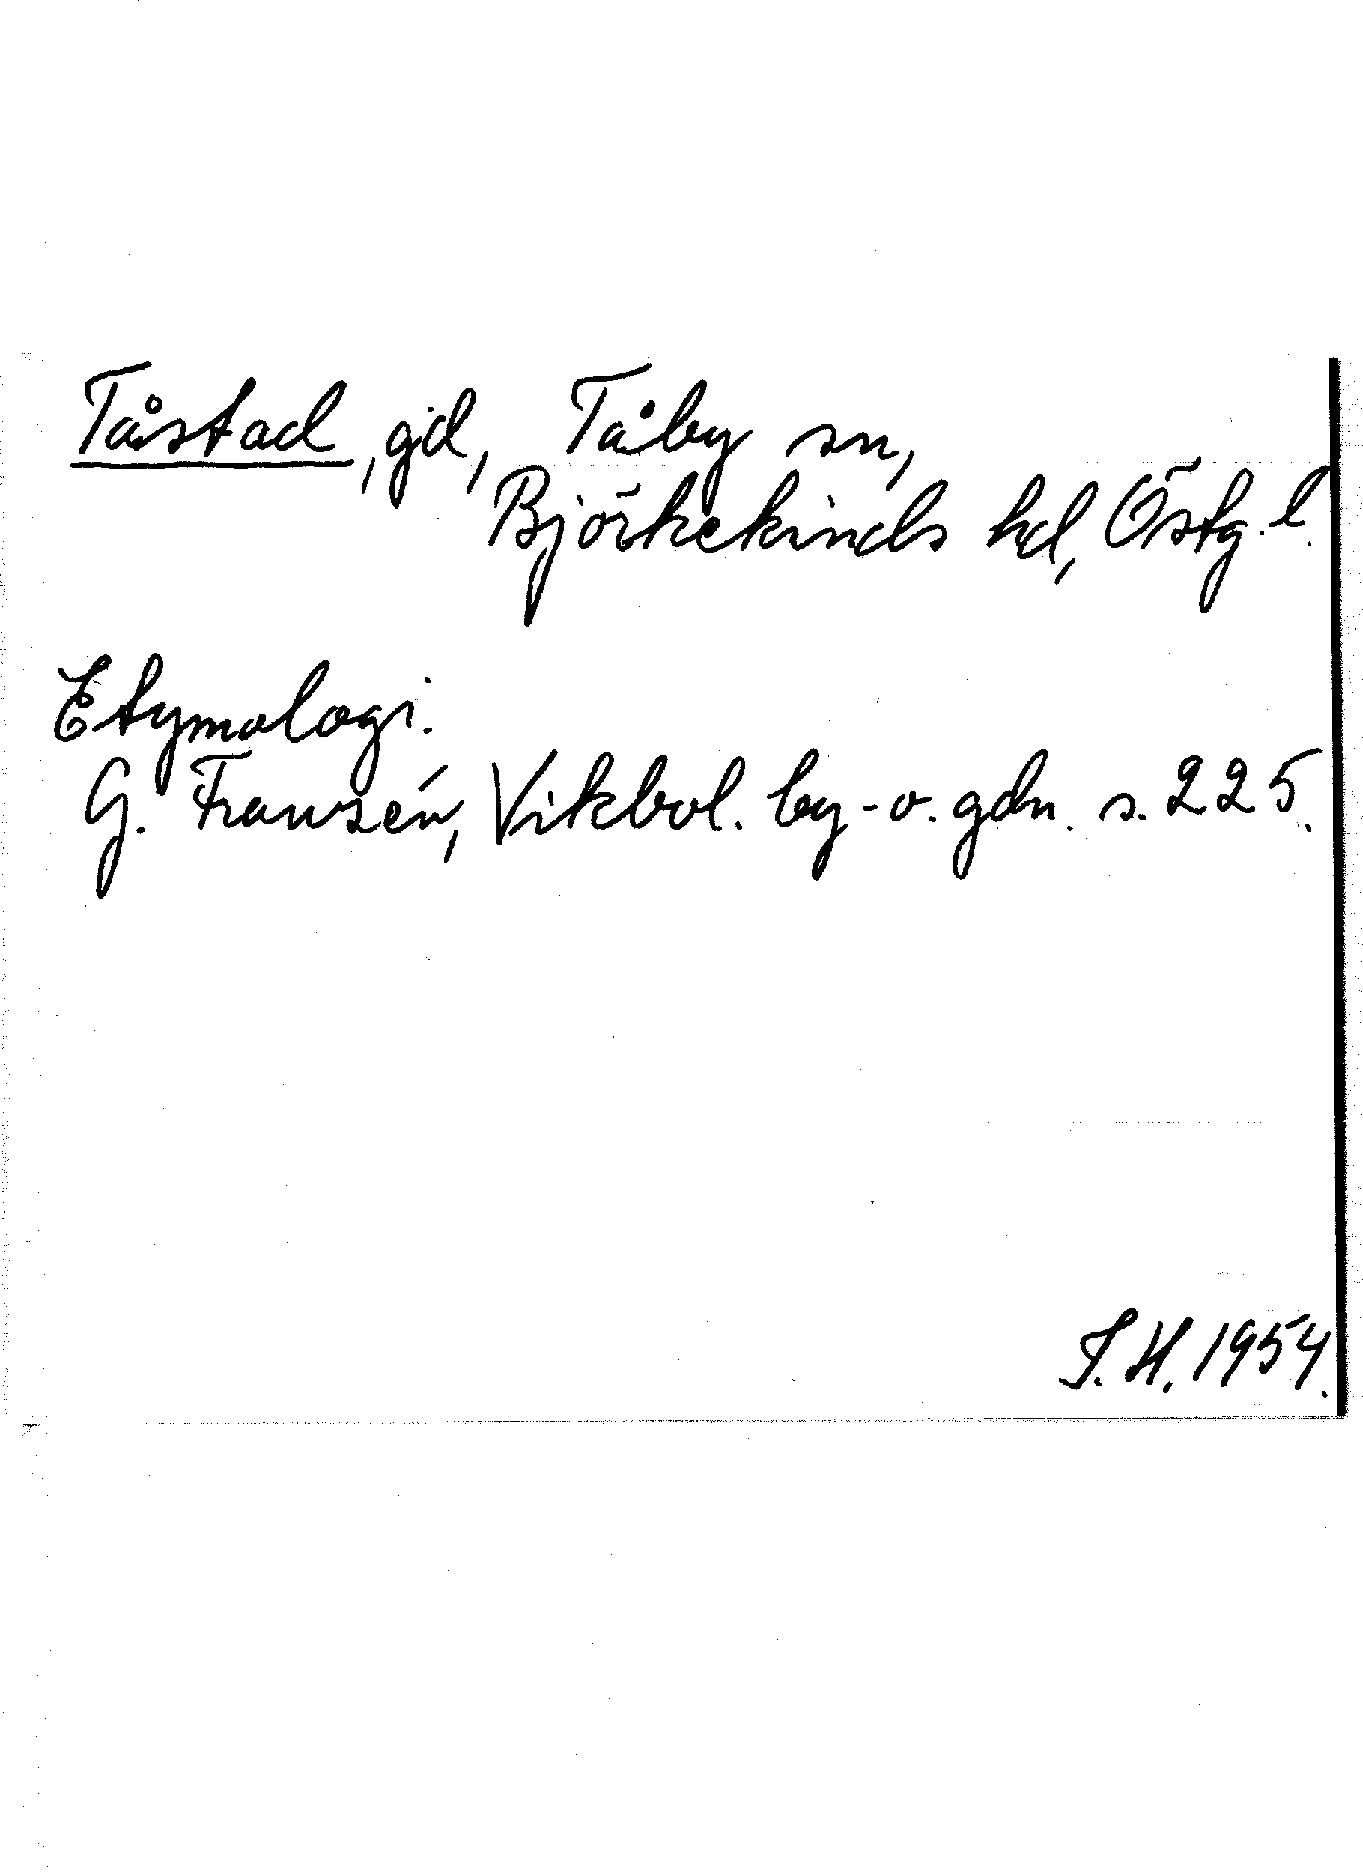 Tåstad, gd, Tåby sn,
Björkekinds hd, Östg. l.
Etymologi.
G. Franzén, Vikbol. by- o. gdn. s. 225.
J. H. 1954.